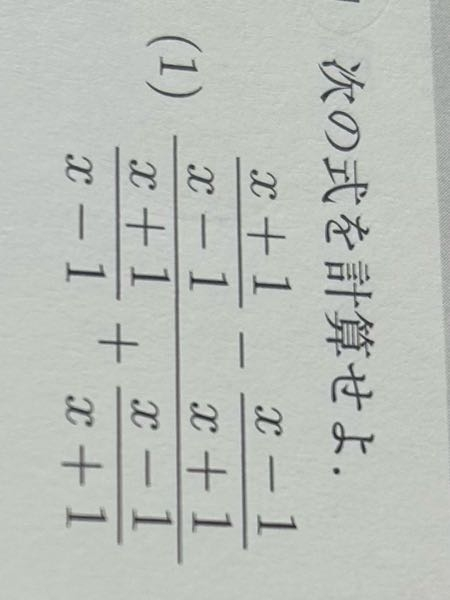 次の式を計算せよ.
(1) \frac{\frac{x+1}{x-1} - \frac{x-1}{x+1}}{\frac{x+1}{x-1} + \frac{x-1}{x+1}}